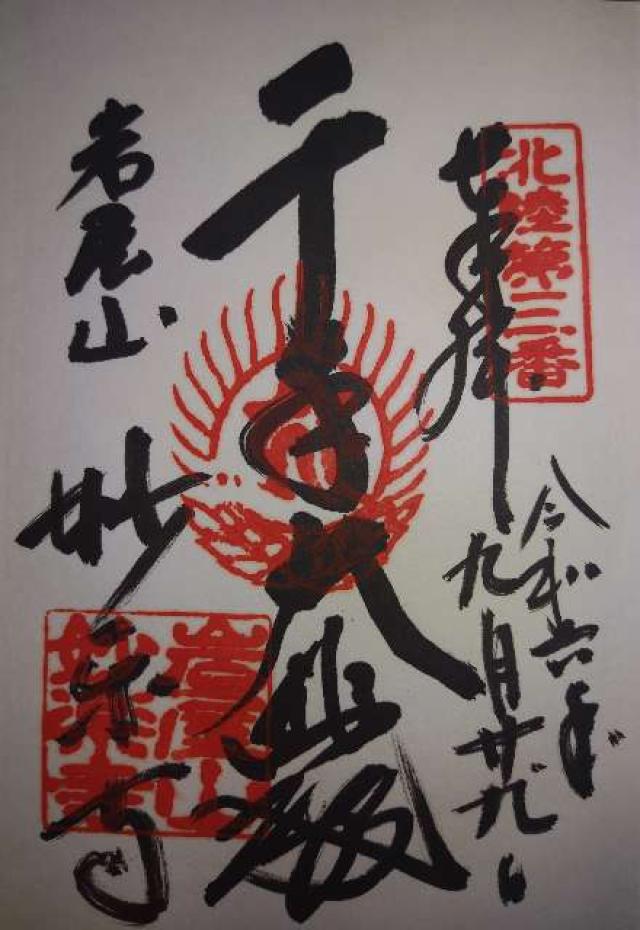 北陸第三番
奉拝
令和六年
九月廿九日
千手大悲殿
岩屋山
妙楽寺
岩屋山
妙楽寺